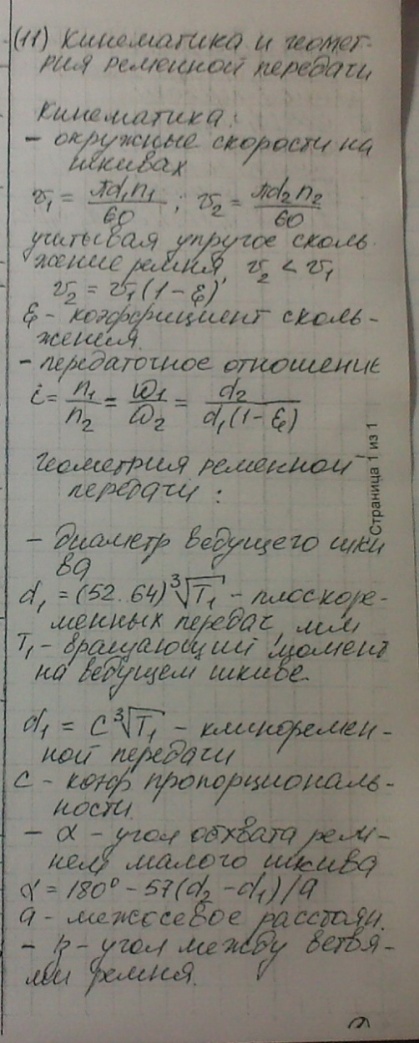 (11) Кинематика и геомет-
рия ременной передачи
Кинематика:
- окружные скорости на
шкивах
v₁ = πd₁n₁/60 ; v₂ = πd₂n₂/60
учитывая упругое сколь
жение ремня, v₂ < v₁
v₂ = v₁(1 - ξ)
ξ - коэффициент сколь-
жения.
- передаточное отношение
i = n₁/n₂ = ω₁/ω₂ = d₂/d₁(1-ξ)
Геометрия ременной
передачи:
- диаметр ведущего шки
ва
d₁ = (52..64)∛T₁ - плоскоре-
менных передач, мм
T₁ - вращающий момент
на ведущем шкиве.
d₁ = C∛T₁ - клиноремен-
ной передачи
C - коэф пропорциональ-
ности.
- α - угол обхвата рем-
нем малого шкива
α = 180° - 57(d₂ - d₁)/a
a - межосевое расстоян.
- β - угол между ветвя-
ми ремня.
Страница 1 из 1